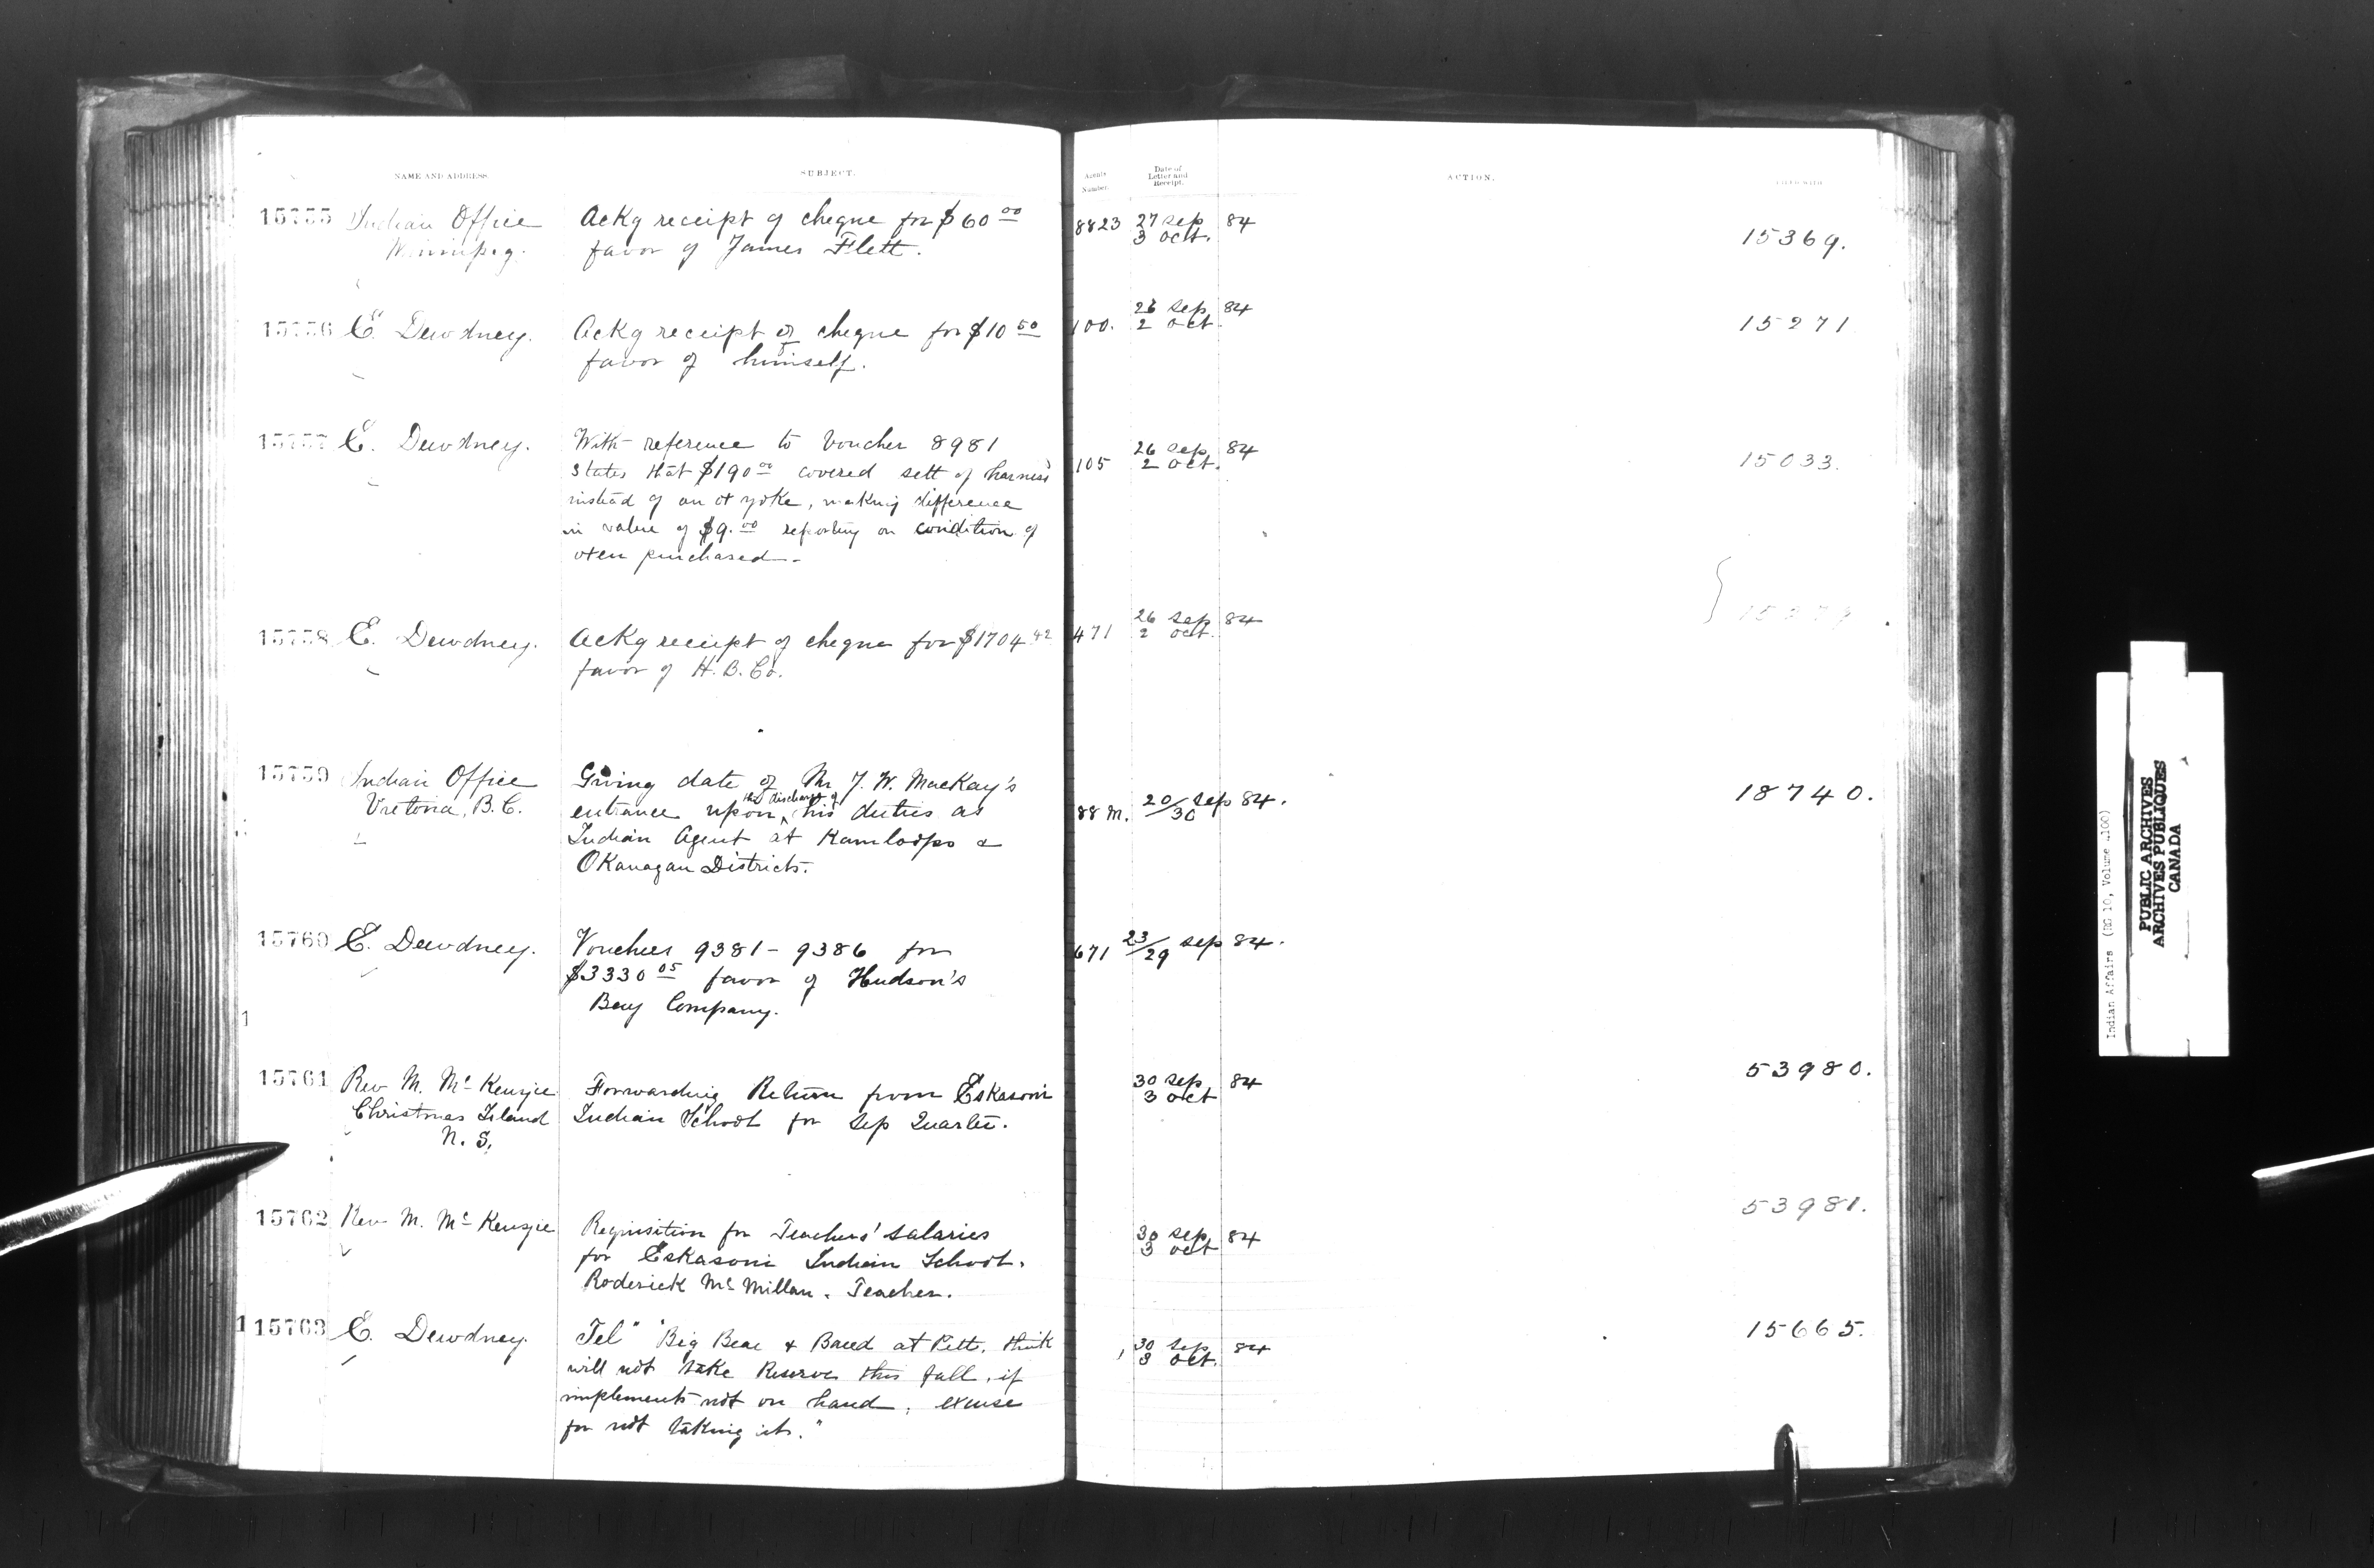 NAME AND ADDRESS
SUBJECT.
Agents Number.
Date of Letter and Receipt.
ACTION.
15755 Indian Office Ackg receipt of cheque for $60 00 8823 27 Sep 84
Winnipeg. favor of James Flett. 3 Oct. 15369.
15756 E. Dewdney. Ackg receipt of cheque for $10 50 100. 26 Sep 84 15271
favor of himself. 2 Oct.
15757 E. Dewdney. With reference to Voucher 8981 105 26 Sep 84 15033.
States that $190 00 covered sett of harness 2 Oct.
instead of an ox yoke, making difference
in value of $9. 00 reporting on condition of
oxen purchased -
15758 E. Dewdney. Ackg receipt of cheque for $1704 42 471 26 Sep 84
favor of H. B. Co. 2 Oct.
15759 Indian Office Giving date of Mr J. W. MacKay's 18740.
Victoria, B.C. entrance upon the discharge of his duties as 88 M. 20/30 Sep 84.
Indian Agent at Kamloops &
Okanagan Districts.
15760 E. Dewdney. Vouchers 9381 - 9386 for 671 23/29 Sep 84.
$3330 05 favor of Hudson's
Bay Company.
15761 Rev M. Mc Kenzie Forwarding Return from Eskasoni 30 Sep 84 53980.
Christmas Island Indian School for Sep Quarter. 3 Oct
N. S.
15762 Rev M. Mc Kenzie Requisition for Teachers' Salaries 30 Sep 84 53981.
for Eskasoni Indian School. 3 Oct
Roderick McMillan. Teacher.
15763 E. Dewdney. Tel" "Big Bear & Band at Pitt, think 30 Sep 84 15665.
will not take Reserve this fall, if 3 Oct.
implements not on hand, excuse
for not taking it."
Indian Affairs (RG 10, Volume 4100)
PUBLIC ARCHIVES
ARCHIVES PUBLIQUES
CANADA